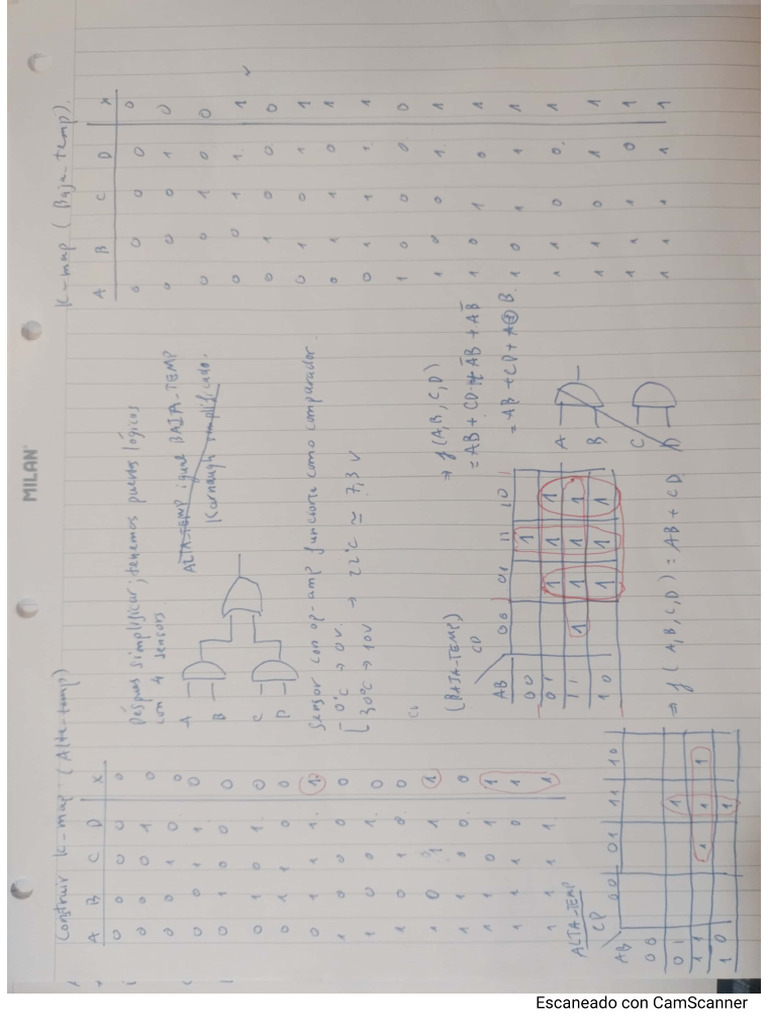 MILAN
Construir K-map (Alta-temp)
A B C D X
0 0 0 0 0
0 0 0 1 0
0 0 1 0 0
0 0 1 1 0
0 1 0 0 0
0 1 0 1 0
0 1 1 0 0
0 1 1 1 1
1 0 0 0 0
1 0 0 1 0
1 0 1 0 0
1 0 1 1 1
1 1 0 0 0
1 1 0 1 1
1 1 1 0 1
1 1 1 1 1
ALTA-TEMP
CD
AB 00 01 11 10
00
01 1
11 1 1 1
10 1
Déspues simplificar, tenemos puertos lógicos
con 4 sensors.
A
B
C
D
ALTA-TEMP igual BAJA-TEMP
Karnaugh simplificado.
Sensor con op-amp funcione como comparador.
0°C → 0V.
30°C → 10V → 22°C ≃ 7,3 V
(BAJA-TEMP)
CD
AB 00 01 11 10
00 1
01 1 1 1
11 1 1 1 1
10 1 1 1
⇒ f (A,B,C,D) = AB + CD
⇒ f (A,B,C,D)
= AB + CD + A̅B + AB̅
= AB + CD + A⊕B.
A
B
C
D
K-map (Baja-temp).
A B C D X
0 0 0 0 0
0 0 0 1 0
0 0 1 0 0
0 0 1 1 1
0 1 0 0 0
0 1 0 1 1
0 1 1 0 1
0 1 1 1 1
1 0 0 0 0
1 0 0 1 1
1 0 1 0 1
1 0 1 1 1
1 1 0 0 1
1 1 0 1 1
1 1 1 0 1
1 1 1 1 1
Escaneado con CamScanner